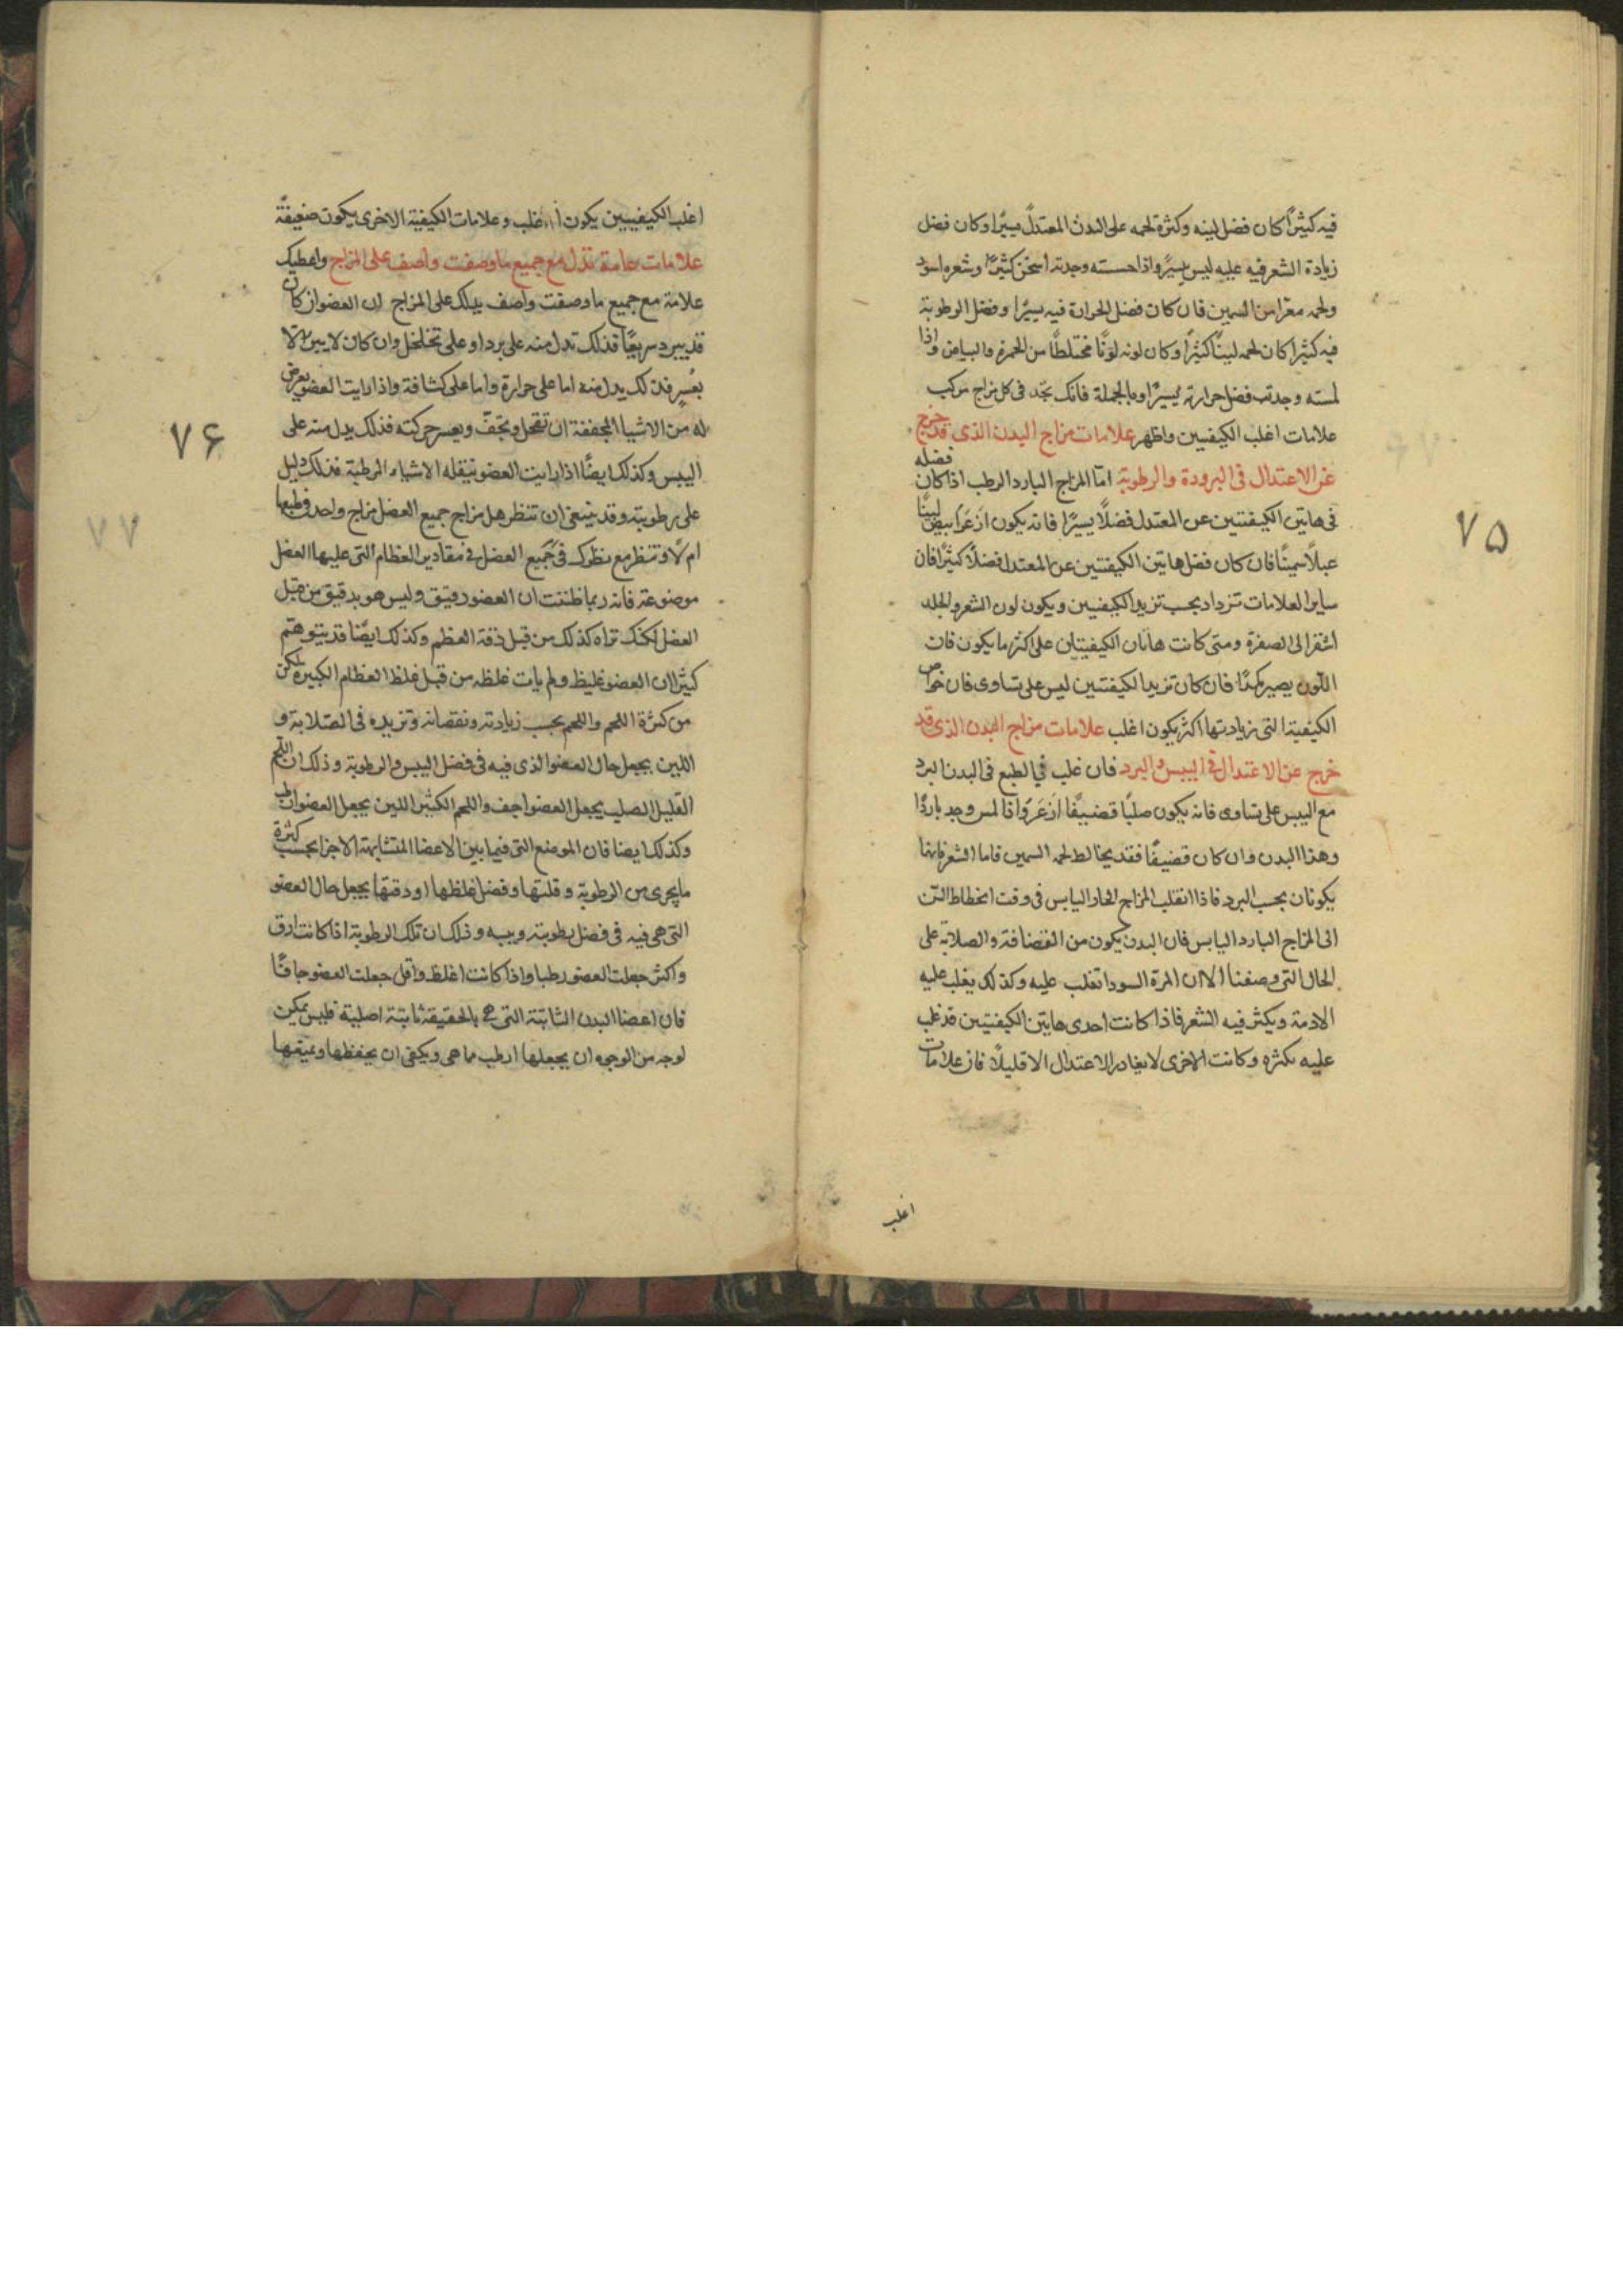 فيه كثيرًا كان فضل لينه وكثرة لحمه على البدن المعتدل يسيرًا وكان فضل
زيادة الشعر فيه عليه ليس بيسير واذا حسسته وجدته اسخن كثيرًا وشعره اسود
ولحمه معرا من السمين فان كان فضل الحرارة فيه يسيرًا وفضل الرطوبة
فيه كثيرًا كان لحمه لينًا كثيرًا وكان لونه لونًا مختلطًا من الحمرة والبياض واذا
لمسته وجدت فضل حرارته يسيرًا وبالجملة فانك تجد فى كل مزاج مركب
علامات اغلب الكيفيتين واظهر علامات مزاج البدن الذى قد خرج
عن الاعتدال فى البرودة والرطوبة امّا المزاج البارد الرطب اذا كان فضله
فى هاتين الكيفيتين عن المعتدل فضلًا يسيرًا فانه يكون ازعر ابيض لينًا
عبلًا سمينًا فان كان فضل هاتين الكيفيتين عن المعتدل فضلًا كثيرًا فان
ساير العلامات تزداد بحسب تزيد الكيفيتين ويكون لون الشعر والجلد
اشقر الى الصفرة ومتى كانت هاتان الكيفيتان على اكثر ما يكون فان
اللون يصير كمدًا فان كان تزيد الكيفيتين ليس على تساوى فان خواص
الكيفية التى زيادتها اكثر يكون اغلب علامات مزاج البدن الذى قد
خرج عن الاعتدال فى اليبس والبرد فان غلب فى الطبع فى البدن البرد
مع اليبس على تساوى فانه يكون صلبًا قضيفًا ازعر واذا لمس وجد باردًا
وهذا البدن وان كان قضيفًا فقد يخالط لحمه السمين فاما الشعر فانهما
يكونان بحسب البرد فاذا انقلب المزاج الحار اليابس فى وقت انحطاط السّن
الى المزاج البارد اليابس فان البدن يكون من القضافة والصلابة على
الحال التى وصفنا الا ان المرة السودا تغلب عليه وكذلك يغلب عليه
الادمة ويكثر فيه الشعر فاذا كانت احدى هاتين الكيفيتين قد غلب
عليه بكثره وكانت الاخرى لا يغادر الاعتدال الا قليلًا فان علامات
اغلب
٧۵
اغلب الكيفيتين يكون اغلب وعلامات الكيفية الاخرى يكون ضعيفة
علامات عامة تدل مع جميع ما وصفت واصف على المزاج واعطيك
علامة مع جميع ما وصفت واصف يدلك على المزاج ان العضو ان كان
قد يبرد سريعًا فذلك تدل منه على برد او على تخلخل وان كان لا يبرد الا
بعسر فذلك يدل منه اما على حرارة واما على كثافة واذا رايت العضو يعرض
له من الاشيا المجففة ان تقحل وتجفّ ويعسر حركته فذلك يدل منه على
اليبس وكذلك ايضًا اذا رايت العضو يثقله الاشياء الرطبة فذلك دليل
على رطوبته وقد ينبغى ان تنظر هل مزاج جميع العضل مزاج واحد فى طبعها
ام لا وتنظر مع نظرك فى جميع العضل فى مقادير العظام التى عليها العضل
موضوعة فانه ربما ظننت ان العضو رقيق وليس هو بدقيق من قبل
العضل لكنك تراه كذلك من قبل دقة العظم وكذلك ايضًا قد يتوهم
كثيرًا ان العضو غليظ ولم يات غلظه من قبل غلظ العظام الكبيرة لكن
من كثرة اللحم واللحم بحسب زيادته ونقصانه وتزيده فى الصلابة و
اللين يجعل حال العضو الذى فيه فى فضل اليبس والرطوبة وذلك ان اللحم
القليل الصلب يجعل العضو اجف واللحم الكثير اللين يجعل العضو ارطب
وكذلك ايضا فان الموضع التى فيما بين الاعضا المتشابهة الاجزا بحسب كثرة
ما يجرى من الرطوبة وقلتها وفضل غلظها او دقتها يجعل حال العضو
التى هى فيه فى فضل رطوبته ويبسه وذلك ان تلك الرطوبة اذا كانت ارق
واكثر جعلت العضو رطبا واذا كانت اغلظ واقل جعلت العضو جافًا
فان اعضا البدن الثابتة التى هى بالحقيقة ثابتة اصلية فليس يمكن
لوجه من الوجوه ان يجعلها ارطب مما هى ويكفى ان يحفظها
٧۶
٧٧